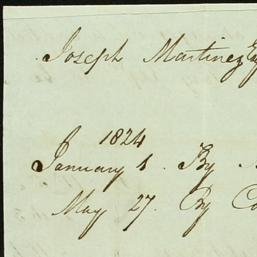 Joseph Martinez
1824
January 1. By
May 27. By